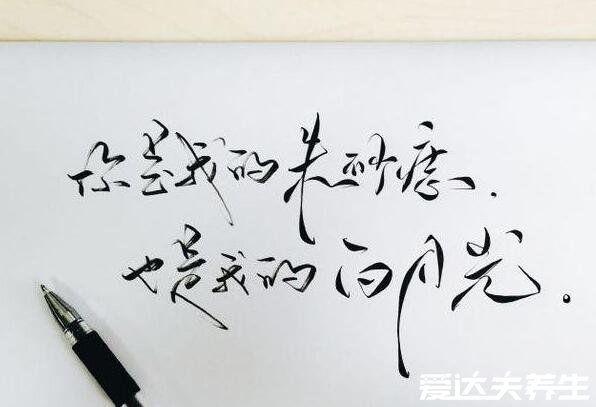 你是我的朱砂痣.
也是我的白月光.
爱达夫养生